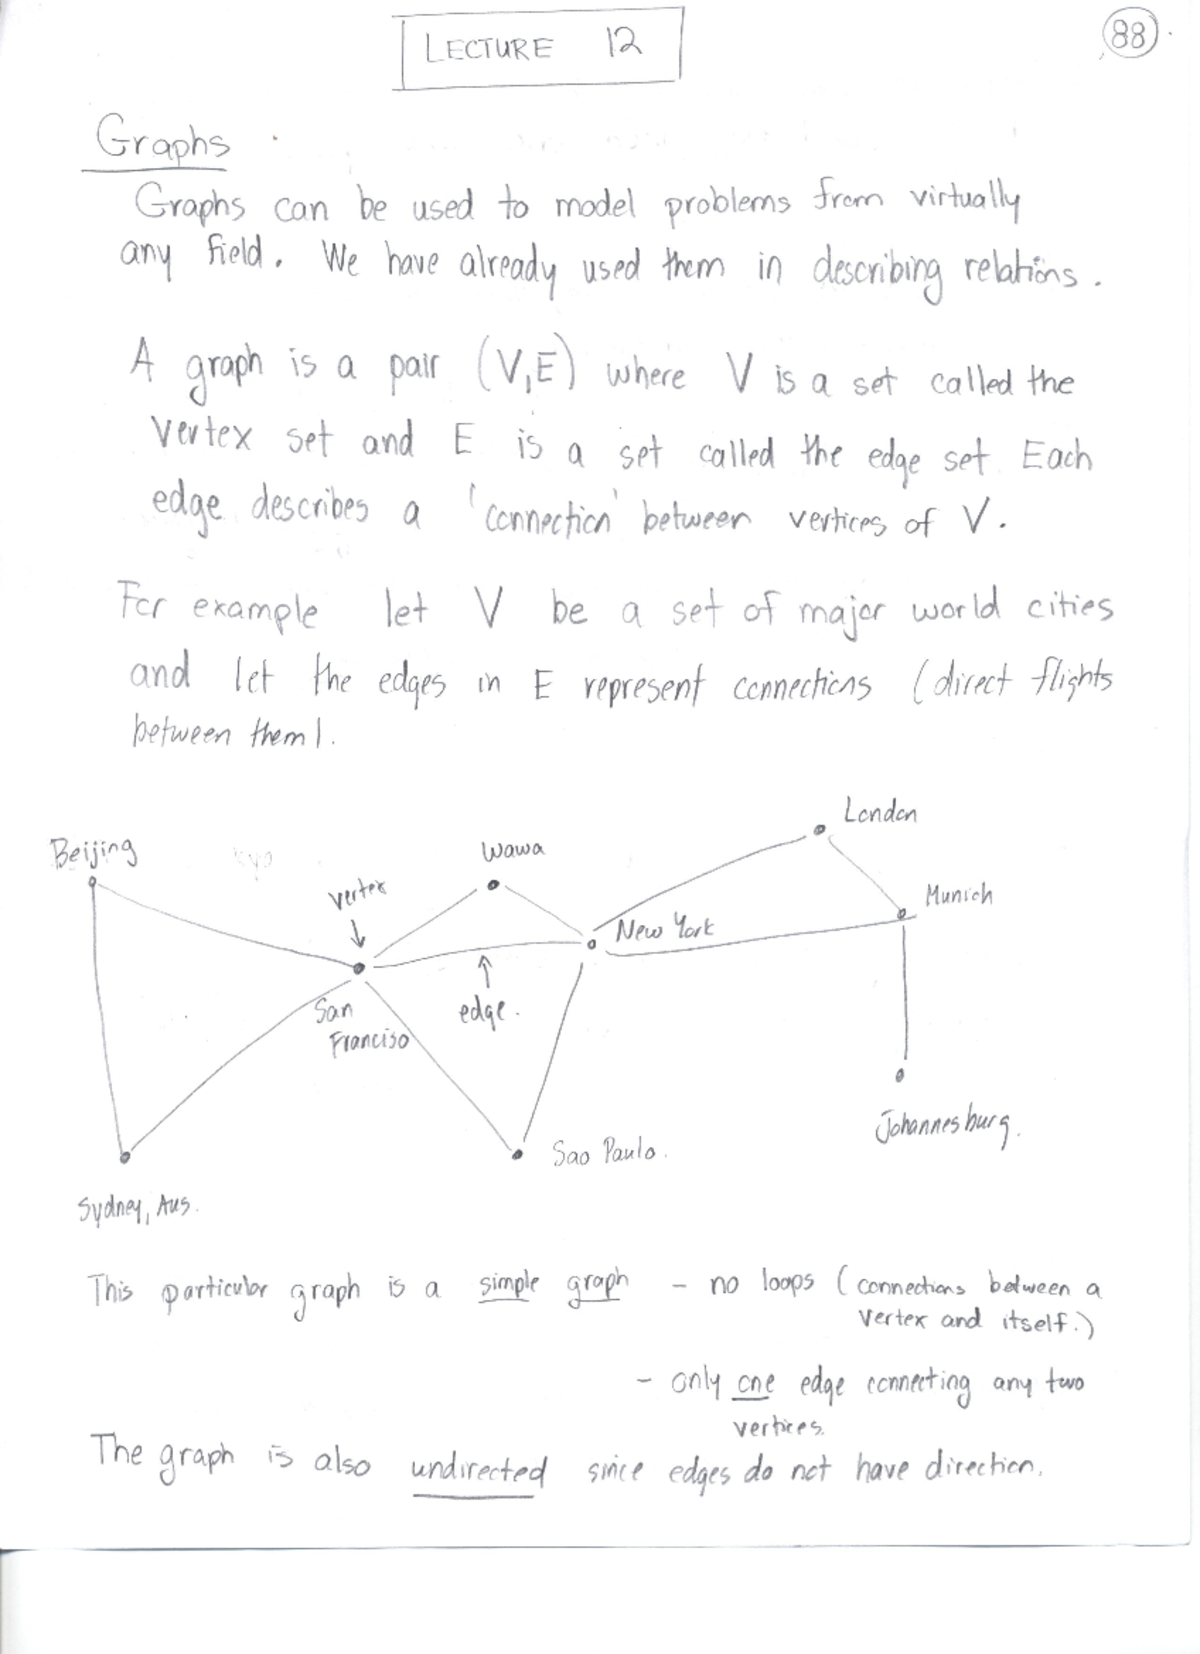 LECTURE 12
88
Graphs
Graphs can be used to model problems from virtually
any field. We have already used them in describing relations.
A graph is a pair (V,E) where V is a set called the
vertex set and E is a set called the edge set Each
edge describes a 'connection' between vertices of V.
For example let V be a set of major world cities
and let the edges in E represent connections (direct flights
between them).
London
Beijing
Wawa
vertex
Munich
New York
San
Franciso
edge.
Johannesburg.
Sao Paulo.
Sydney, Aus.
This particular graph is a simple graph - no loops (connections between a
vertex and itself.)
- only one edge connecting any two
vertices.
The graph is also undirected since edges do not have direction.